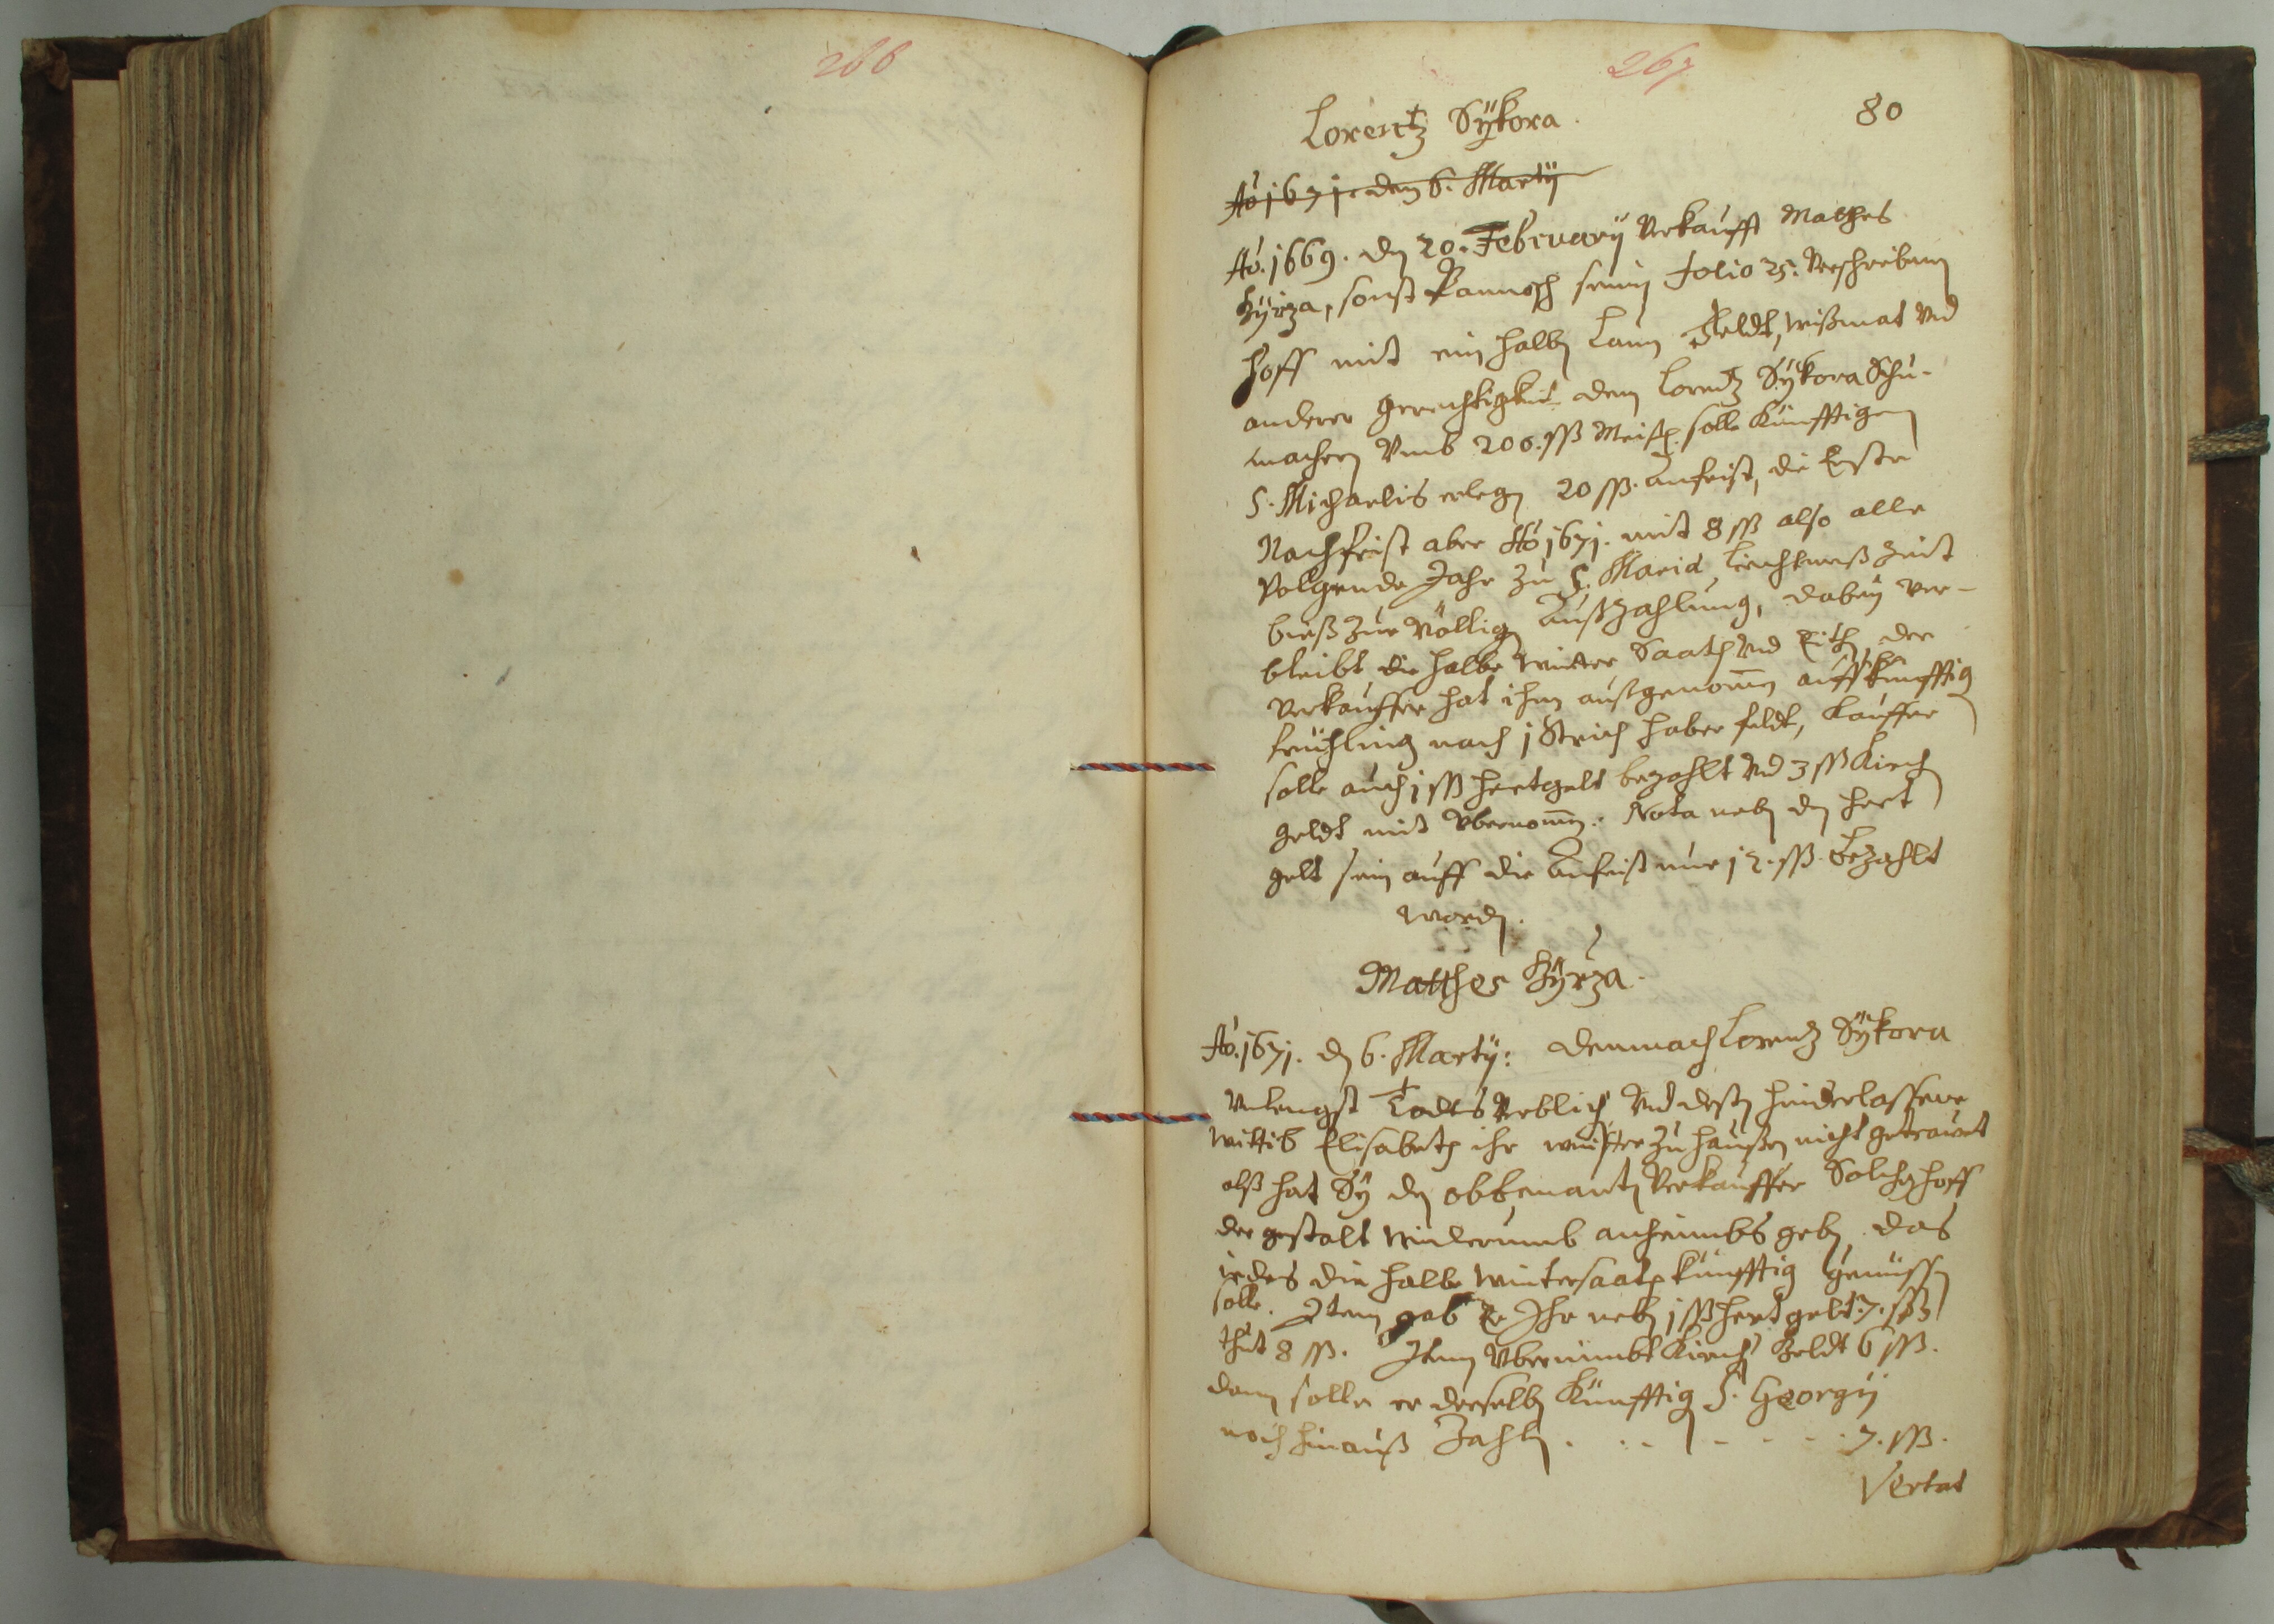 266
267
80
Lorentz Sÿkora.
Aõ 1671. den 6. Martÿ
Aõ. 1669. dn 20. Februarÿ Verkaufft Mathes
Hÿrza, sonst seinen Folio 25. Verschriebnen
Hoff mit ein halben Laan Feldt, wißmat vnd
anderer gerechtigkeit dem Lorentz Sÿkora Schu-
machern Vmb 200. ßß Meisn. solle Künfftigen
S. Michaelis erlegen 20 ßß. anfrist, die Erste
Nachfrist aber Aõ 1671. mit 8 ßß also alle
Volgende Jahr zu S. Mariæ Liechtmeß Zeit
bieß zur völligen außzahlung, dabeÿ ver-
bleibt die halbe Winter Saath vnd der
Verkauffer hat ihm außgenomen auff künfftig
früehling nach 1 Strich haber feldt, Kauffer
solle auch 1 ßß hertgelt bezahlt vnd 3 ßß Kirch
geldt mit Vbernomen: Nota neben dn hert
gelt sein auff die Anfrist nur 12. ßß. Bezahlt
worden.
Matthes Hÿrza.
Aõ. 1671. dn 6. Martÿ: demnach Lorentz Sÿkora
vnlengst Todts Verblichen Vnd dessen hinderlassene
Wittib Elisabeth ihr weiter zu haußen nicht getrauet
alß hat Sÿ dn obbenanten Verkauffer Solchen hoff
der gestalt widerumb anheimbs geben, das
iedes die halbe wintersaath künfftig genüssen
solle. Item gab Er Ihr neben 1 ßß hert gelt. 7. ßß
thut 8 ßß. Item Vbernimbt Kirchen Geldt 6 ßß.
dann solle er derselben Künfftig S. Georgÿ
noch hinauß Zahlen . . . - - - . 7. ßß.
Vertat